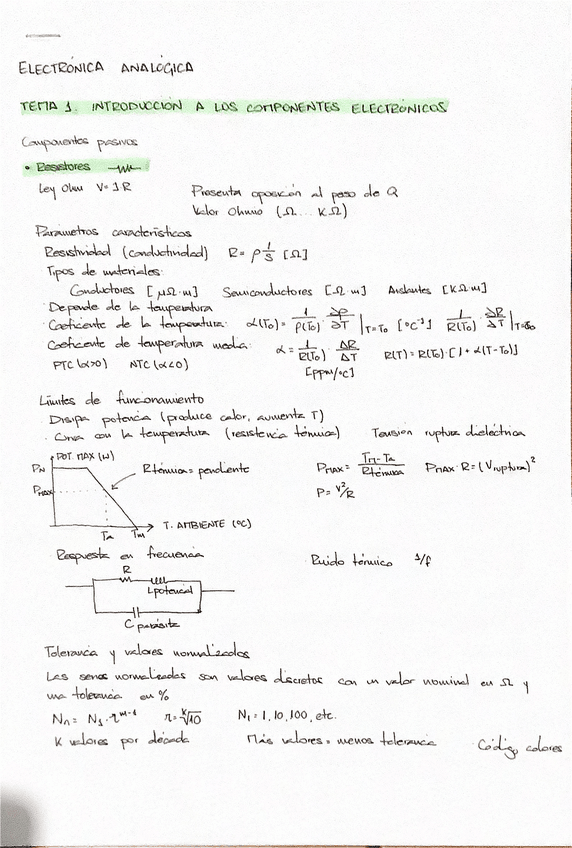 ELECTRÓNICA ANALÓGICA
TEMA 1. INTRODUCCIÓN A LOS COMPONENTES ELECTRÓNICOS
Componentes pasivos
• Resistores
Ley Ohm V=I·R Presenta oposición al paso de Q
Valor Óhmico (Ω... KΩ)
Parámetros característicos
Resistividad (conductividad) R = ρ l/S [Ω]
Tipos de materiales:
Conductores [μΩ·m] Semiconductores [Ω·m] Aislantes [KΩ·m]
· Depende de la temperatura
· Coeficiente de la temperatura: α(To) = 1/ρ(To) · ∂ρ/∂T |T=To [°C⁻¹] 1/R(To) · ∂R/∂T |T=To
Coeficiente de temperatura media: α = 1/R(To) · ΔR/ΔT R(T) = R(To)·[1+α(T-To)]
PTC (α>0) NTC (α<0) [ppm/°C]
Límites de funcionamiento
· Disipa potencia (produce calor, aumenta T)
· con la temperatura (resistencia térmica) Tensión ruptura dieléctrica
POT. MAX (W)
PN
PMAX
Rtérmica = pendiente
Ta Tm
T. AMBIENTE (°C)
PMAX = Tm-Ta/Rtérmica PMAX·R = (Vruptura)²
P = V²/R
Respuesta en frecuencia Ruido térmico 1/f
R
Lpotencial
C parásita
Tolerancia y valores normalizados
Las series normalizadas son valores discretos con un valor nominal en Ω y
una tolerancia en %
Nn = N1·r^m-1 r = ᴷ√10 N1 = 1, 10, 100, etc.
K valores por década Más valores = menos tolerancia Código colores